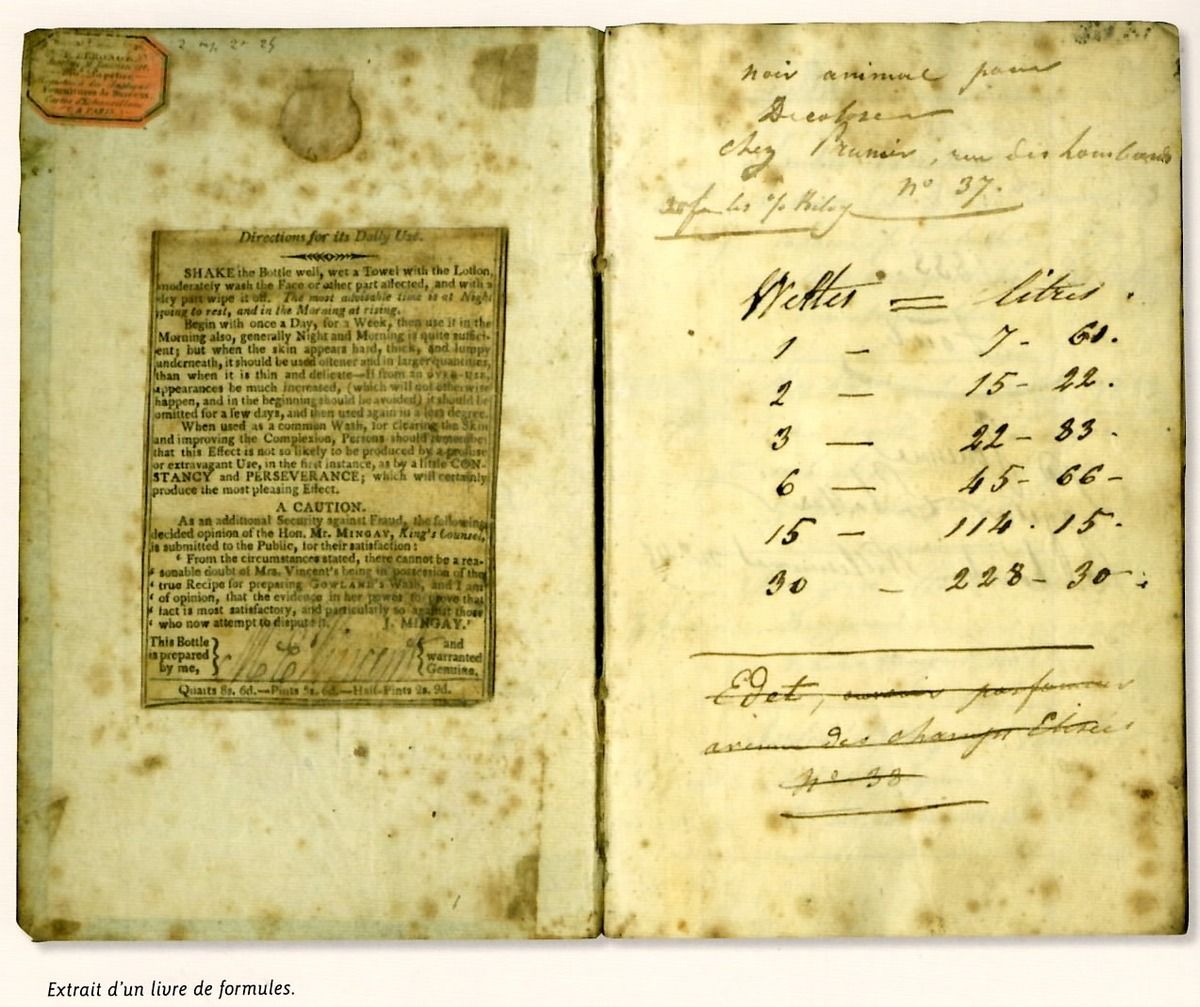 Papetier
Fournitures de Bureaux,
A PARIS
Directions for its Daily Use.
SHAKE the Bottle well, wet a Towel with the Lotion,
moderately wash the Face or other part affected, and with a
dry part wipe it off. The most advisable time is at Night
going to rest, and in the Morning at rising.
Begin with once a Day, for a Week, then use it in the
Morning also, generally Night and Morning is quite suffici-
ent; but when the skin appears hard, thick, and lumpy
underneath, it should be used oftener and in larger quantities,
than when it is thin and delicate—If from an OVER-USE,
appearances be much increased, (which will not otherwise
happen, and in the beginning should be avoided) it should be
omitted for a few days, and then used again in a less degree.
When used as a common Wash, for clearing the Skin
and improving the Complexion, Persons should remember
that this Effect is not so likely to be produced by a profuse
or extravagant Use, in the first instance, as by a little CON-
STANCY and PERSEVERANCE; which will certainly
produce the most pleasing Effect.
A CAUTION.
As an additional Security against Fraud, the following
decided opinion of the Hon. Mr. MINGAY, King's Counsel,
is submitted to the Public, for their satisfaction:
‘ From the circumstances stated, there cannot be a rea-
‘ sonable doubt of Mrs. Vincent's being in possession of the
‘ true Recipe for preparing GOWLAND'S Wash, and I am
‘ of opinion, that the evidence in her power to prove that
‘ fact is most satisfactory, and particularly so against those
‘ who now attempt to dispute it. J. MINGAY.’
This Bottle
is prepared
by me,
Vincent
and
warranted
Genuine.
Quarts 8s. 6d.—Pints 5s. 6d.—Half-Pints 2s. 9d.
noir animal pour
Decolorer
chez Prunier, rue des Lombards
n° 37.
Weltes = litres.
1 — 7 - 61.
2 — 15 - 22.
3 — 22 - 83.
6 — 45 - 66 -
15 — 114 . 15.
30 - 228 - 30
Edet, parfumeur
avenue des champs Elisées
n° 38
Extrait d'un livre de formules.